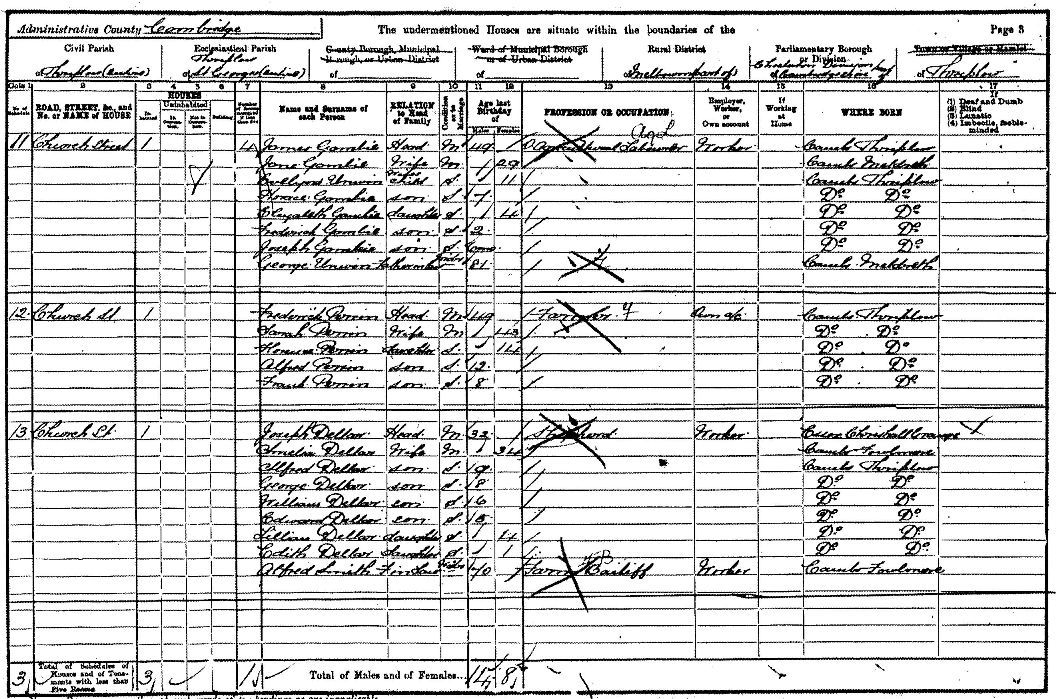 Administrative County Cambridge The undermentioned Houses are situate within the boundaries of the Page 3
Civil Parish Ecclesiastical Parish County Borough, Municipal Borough, or Urban District Ward of Municipal Borough or of Urban District Rural District Parliamentary Borough or Division Town or Village or Hamlet
of Thriplow (entire) of Thriplow St George (entire) of of of Thriplow
Cols 1 2 3 4 5 6 7 8 9 10 11 12 13 14 15 16 17
ROAD, STREET, &c., and No. or NAME of HOUSE HOUSES Uninhabited Building Name and Surname of each Person RELATION to Head of Family Condition as to Marriage Age last Birthday of Males Females PROFESSION OR OCCUPATION Employer, Worker, or Own account If Working at Home WHERE BORN If (1) Deaf and Dumb (2) Blind (3) Lunatic (4) Imbecile, feeble-minded
11 Church Street 1 4 James Gambie Head M 49 Agricultural Labourer Worker Cambs Thriplow
Jane Gambie Wife M Cambs Meldreth
Unwin Child S 11 Cambs Thriplow
Horace Gambie son S 7 Do Do
Elizabeth Gambie Daughter S 4 Do Do
Frederick Gambie son S 2 Do Do
Joseph Gambie son S Do Do
George Unwin Father in law 81 Cambs Meldreth
12 Church St 1 Frederick Perrin Head M 49 Farmer Own a/c Cambs Thriplow
Sarah Perrin Wife M 43 Do Do
Florence Perrin Daughter S 14 Do Do
Alfred Perrin son S 12 Do Do
Frank Perrin son S 8 Do Do
13 Church St 1 Joseph Dellar Head M 32 Shepherd Worker Essex Chrishall Grange
Amelia Dellar Wife M 34 Cambs Fowlmere
Alfred Dellar son S 9 Cambs Thriplow
George Dellar son S 8 Do Do
William Dellar son S 6 Do Do
Edward Dellar son S 5 Do Do
Lillian Dellar Daughter S 4 Do Do
Edith Dellar Daughter S 1 Do Do
Alfred Smith 70 Farm Bailiff Worker Cambs Fowlmere
3 Total of Schedules of Houses and of Tenements with less than Five Rooms 3 1 Total of Males and of Females 14 8